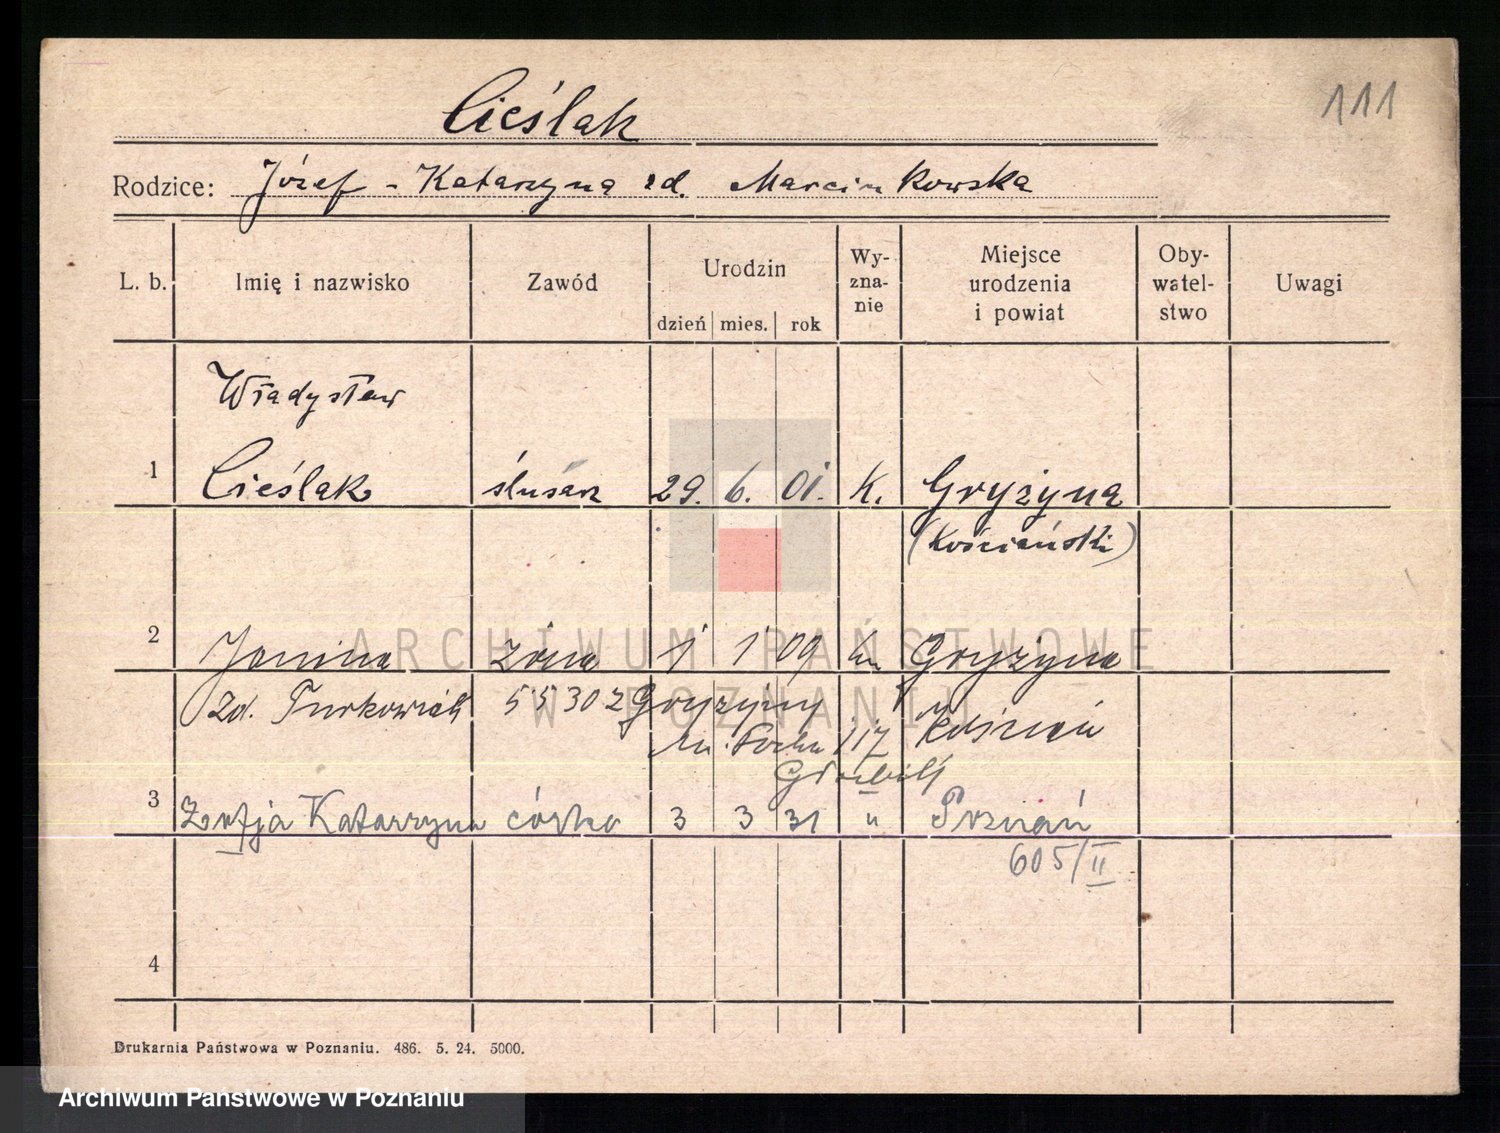 111
Cieślak
Rodzice: Józef - Katarzyna zd. Marcinkowska
L. b. Imię i nazwisko Zawód Urodzin dzień mies. rok Wy-zna-nie Miejsce urodzenia i powiat Oby-watel-stwo Uwagi
Władysław
1 Cieślak ślusarz 29. 6. 01. K. Gryżyna
(Kościański)
2 Janina żona 1 1 09 Gryżyna
zd. Turkowiak 55302 Gryżyny Kościan
117
3 Zofja Katarzyna córka 3 3 31 " Poznań
605/II
4
Drukarnia Państwowa w Poznaniu. 486. 5. 24. 5000.
ARCHIWUM PAŃSTWOWE
W POZNANIU
Archiwum Państwowe w Poznaniu